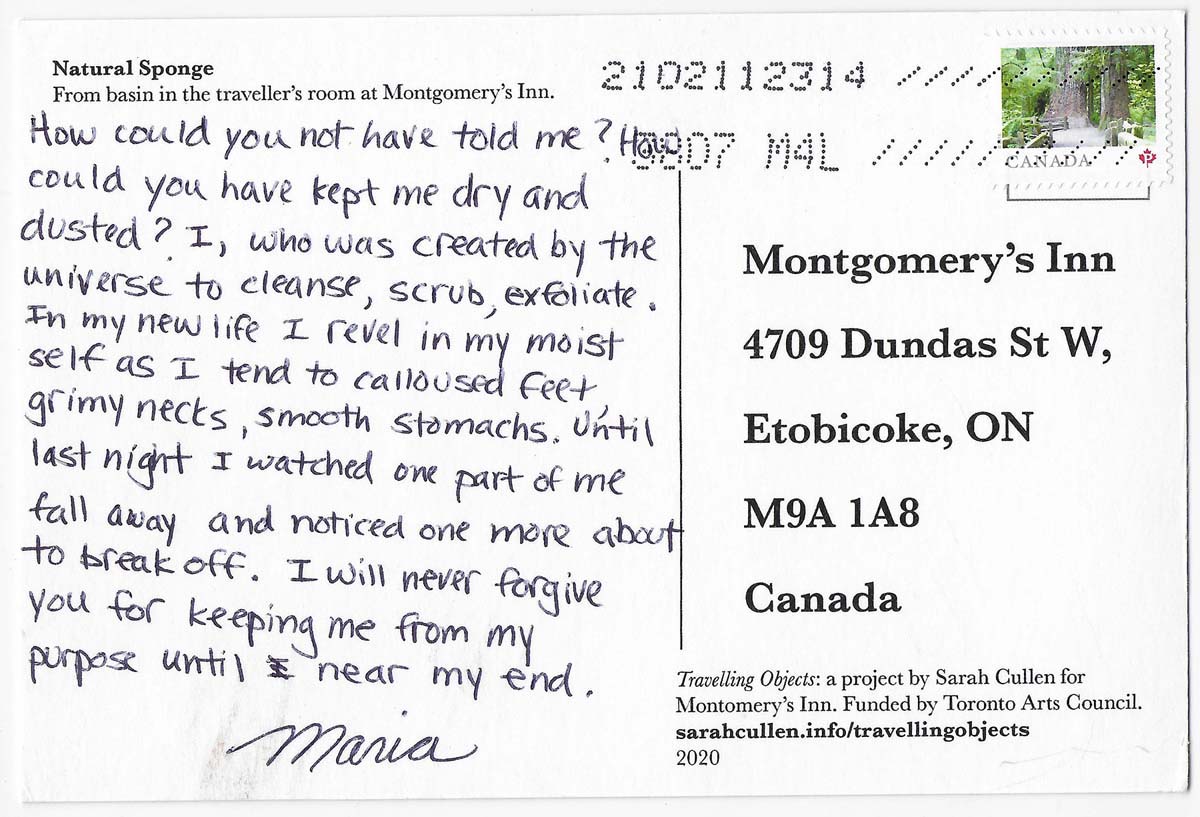 Natural Sponge
From basin in the traveller's room at Montgomery's Inn.
How could you not have told me? How
could you have kept me dry and
dusted? I, who was created by the
universe to cleanse, scrub, exfoliate.
In my new life I revel in my moist
self as I tend to calloused feet,
grimy necks, smooth stomachs. Until
last night I watched one part of me
fall away and noticed one more about
to break off. I will never forgive
you for keeping me from my
purpose until I near my end.
Maria
2102112314
M4L
CANADA
P
Montgomery's Inn
4709 Dundas St W,
Etobicoke, ON
M9A 1A8
Canada
Travelling Objects: a project by Sarah Cullen for
Montomery's Inn. Funded by Toronto Arts Council.
sarahcullen.info/travellingobjects
2020